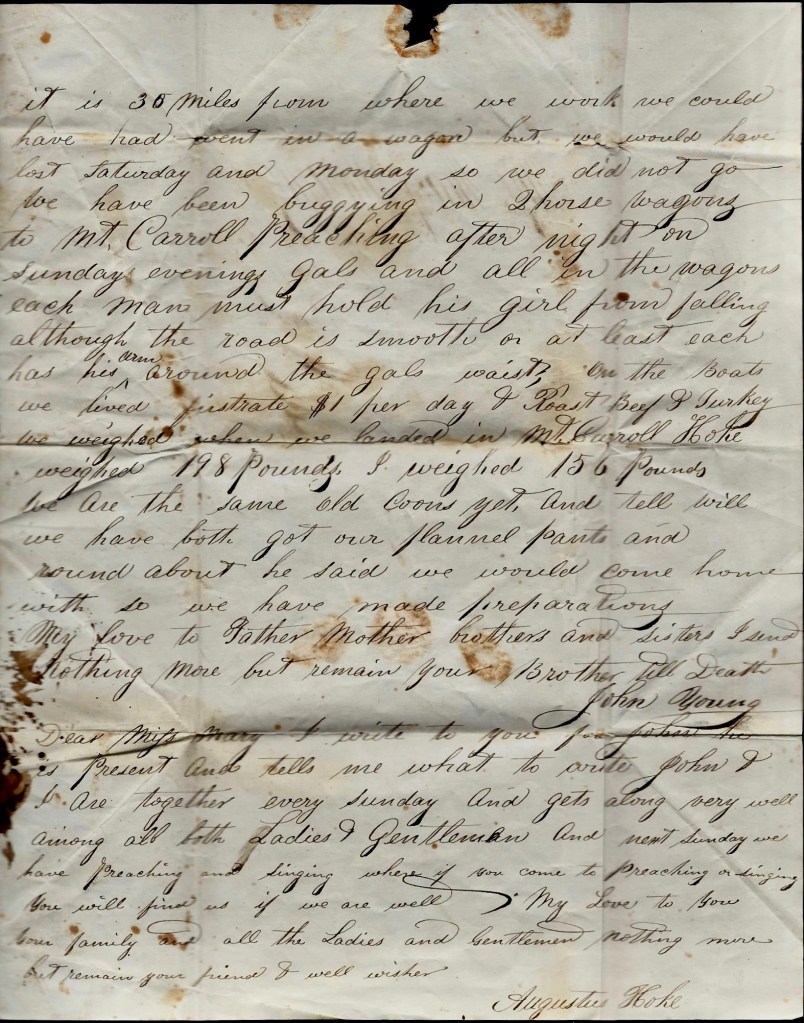 it is 30 Miles from where we work we could
have had went in a wagon but we would have
lost Saturday and Monday so we did not go
We have been buggying in 2 horse wagons
to Mt. Carroll Preaching after night on
Sundays evenings Gals and all in the wagons
each man must hold his girl from falling
although the road is smooth or at least each
has his arm around the gals waist, On the Boats
we lived firstrate $1 per day & Roast Beef & Turkey
we weighed when we landed in Mt. Carroll Hoke
weighed 198 Pounds I weighed 156 Pounds
We Are the same old Coons yet, And tell will
we have both got our flannel pants and
round about he said we would come home
with so we have made preparations
My Love to Father Mother brothers and sisters I send
Nothing More but remain your Brother till Death
John Young
Dear Miss Mary I write to you for John he
is Present And tells me what to write John &
I Are together every Sunday And gets along very well
among all both Ladies & Gentlemen And next Sunday we
have Preaching and Singing where if you come to Preaching or singing
You will find us if we are well My Love to You
Your family and all the Ladies and Gentlemen nothing more
but remain your friend & well wisher
Augustus Hoke